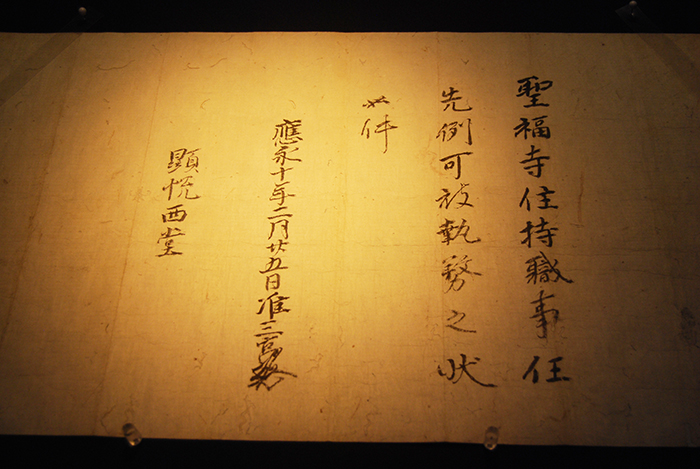 聖福寺住持職事任
先例可被執務之状
如件
應永十年二月廿五日准三宮
顕悦西堂